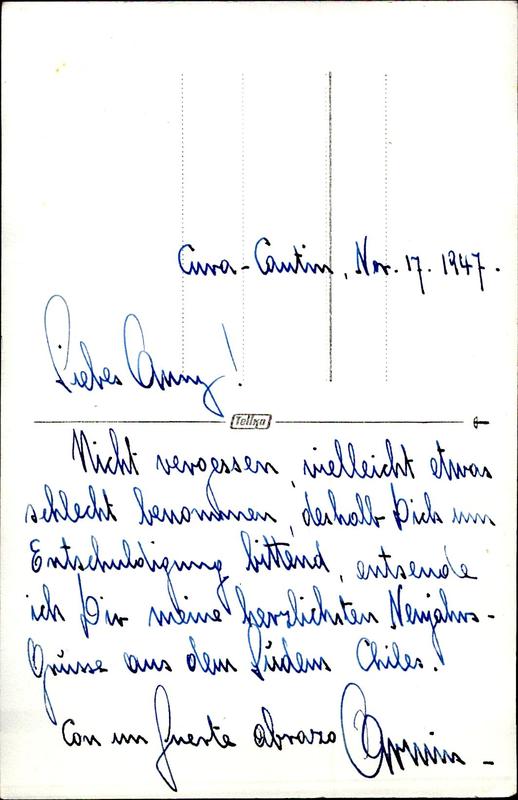 Cura-Cautin, Nov. 17. 1947.
Liebes Anny!
Tellko
Nicht vergessen, vielleicht etwas
schlecht benommen, deshalb Dich um
Entschuldigung bittend, entsende
ich Dir meine herzlichsten Neujahrs-
Grüsse aus dem Südens Chiles.
Con un fuerte abrazo Armin -